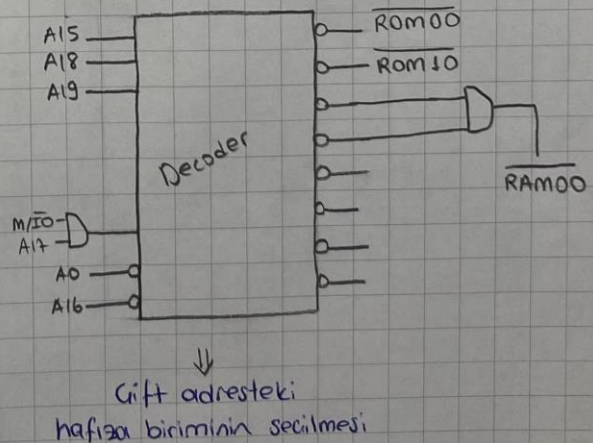 A15
A18
A19
M/I̅O̅
A17
A0
A16
Decoder
R̅O̅M̅0̅0̅
R̅O̅M̅1̅0̅
R̅A̅M̅0̅0̅
Çift adresteki
hafıza biriminin seçilmesi